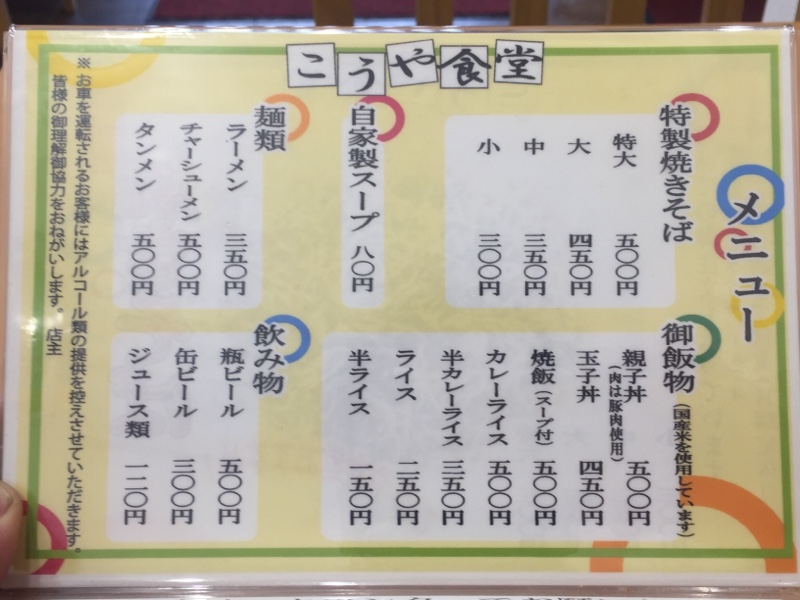 こうや食堂
メニュー
特製焼きそば
特大 五〇〇円
大 四五〇円
中 三五〇円
小 三〇〇円
自家製スープ 八〇円
麺類
ラーメン 三五〇円
チャーシューメン 五〇〇円
タンメン 五〇〇円
御飯物 (国産米を使用しています)
親子丼 五〇〇円
(肉は豚肉使用)
玉子丼 四五〇円
焼飯(スープ付) 五〇〇円
カレーライス 五〇〇円
半カレーライス 三五〇円
ライス 二五〇円
半ライス 一五〇円
飲み物
瓶ビール 五〇〇円
缶ビール 三〇〇円
ジュース類 一二〇円
※ お車を運転されるお客様にはアルコール類の提供を控えさせていただきます。
皆様の御理解御協力をおねがいします。 店主